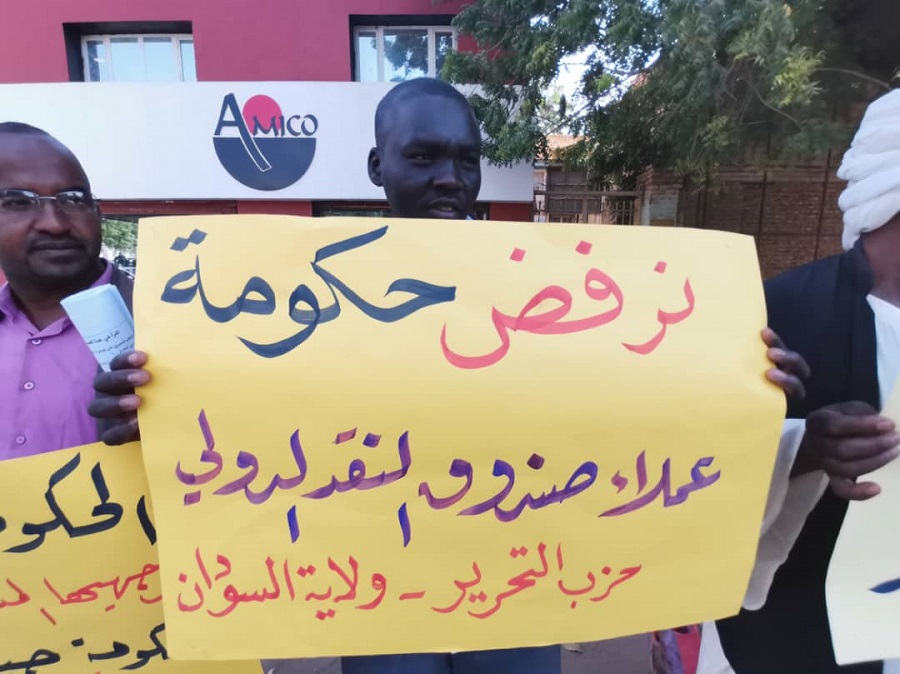 AMICO
نرفض حكومة
عملاء صندوق النقد الدولي
حزب التحرير - ولاية السودان
الحكو